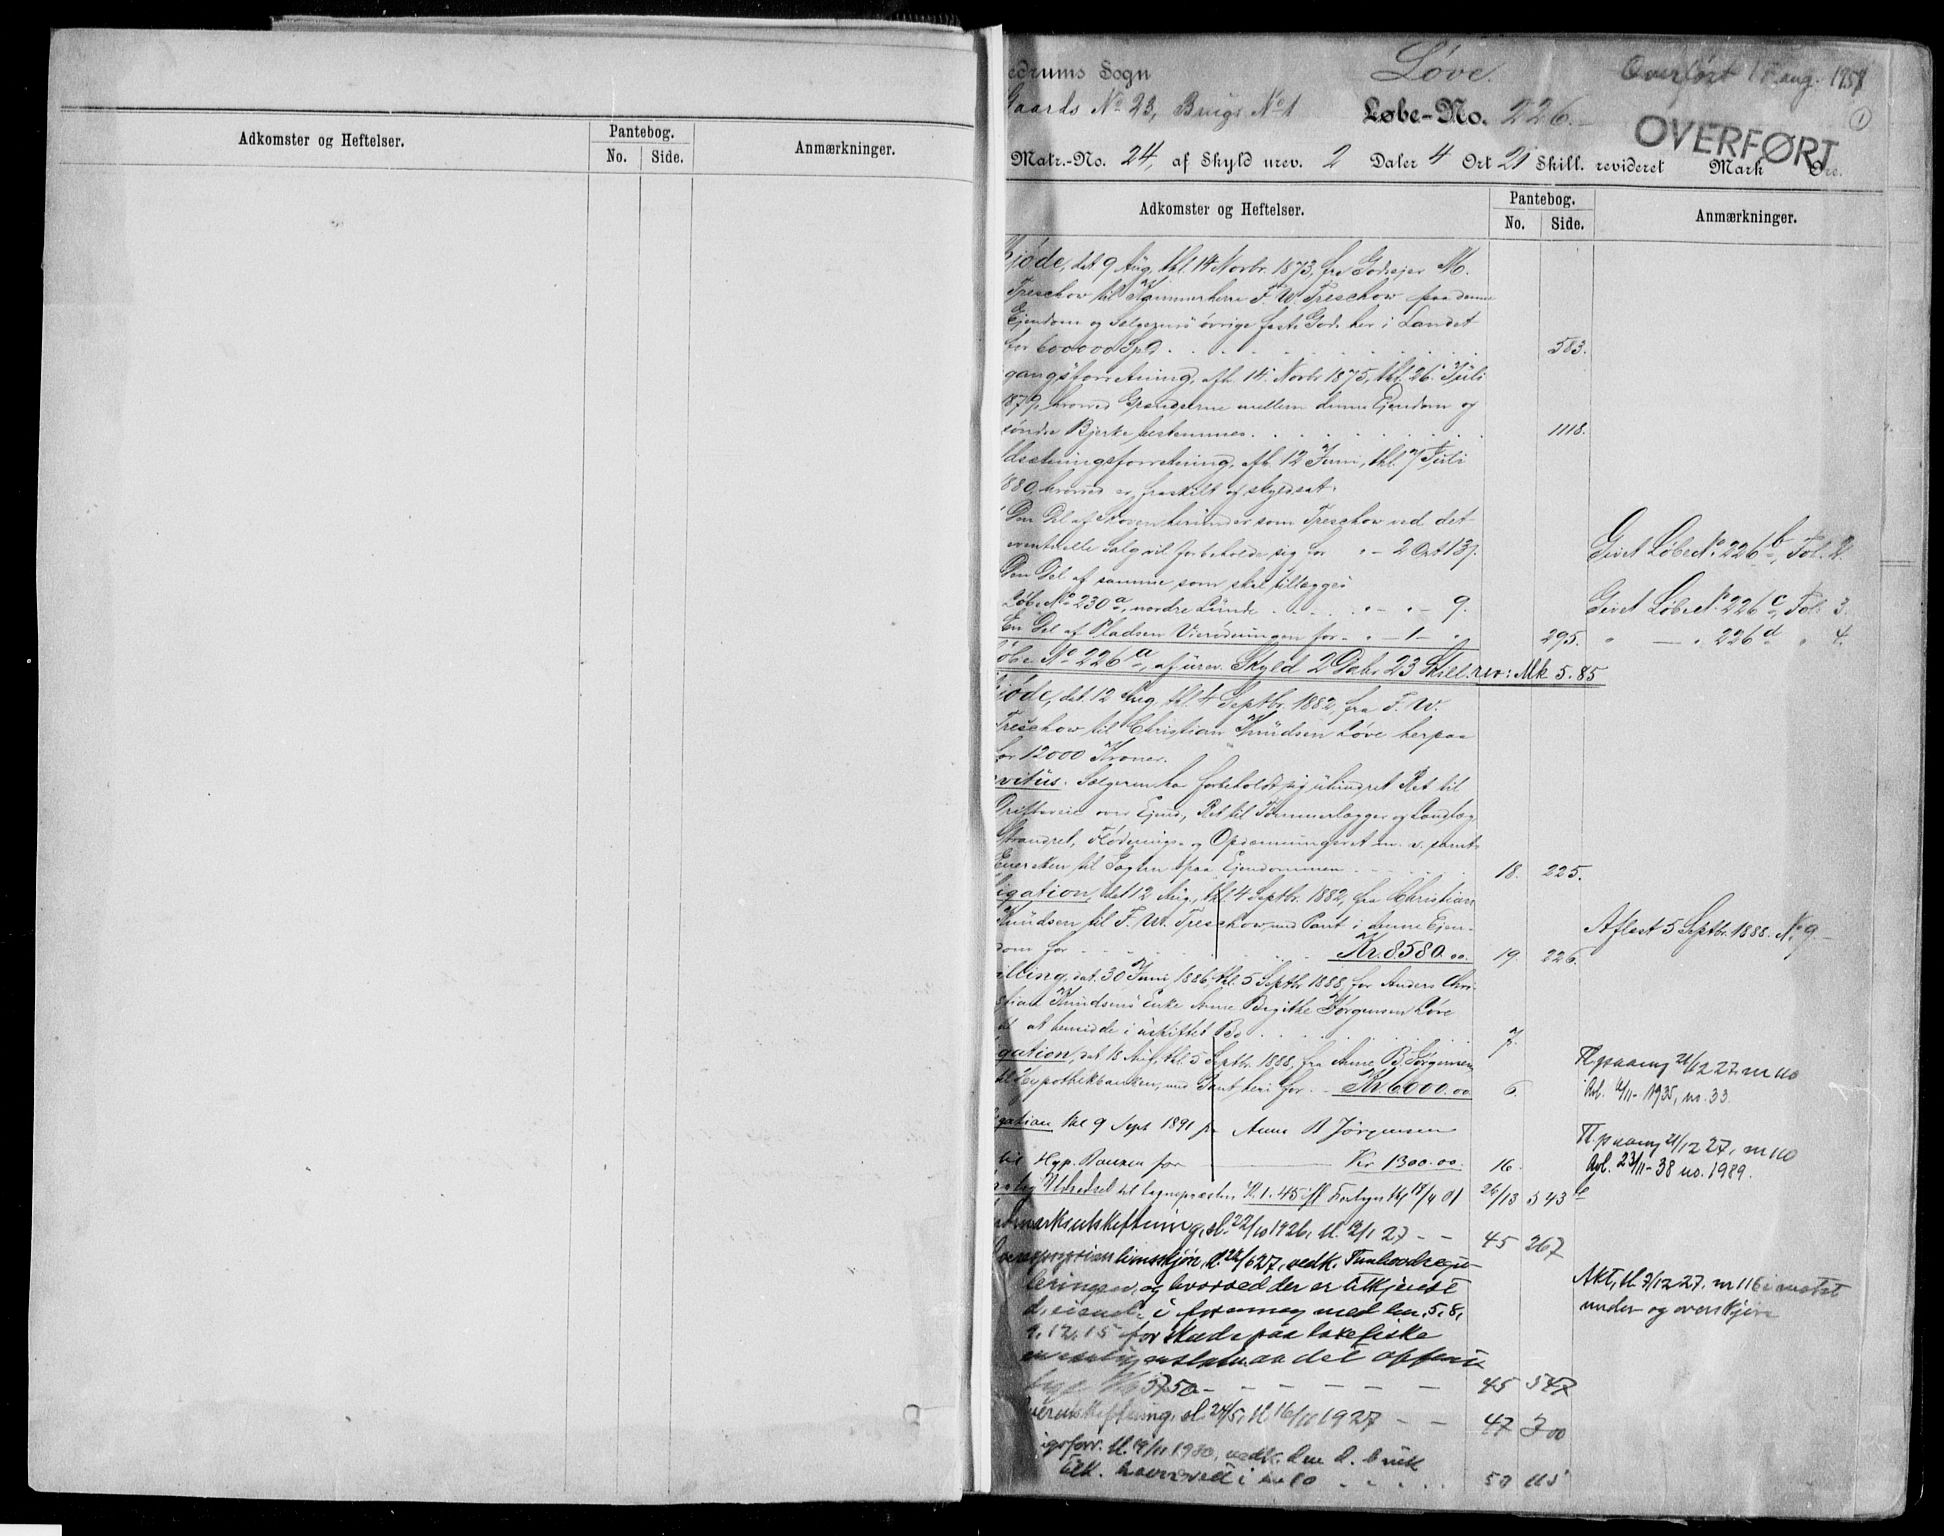 Adkomster og Heftelser.
Pantebog.
No. Side.
Anmærkninger.
edrums Sogn
Løve.
Overført 1 aug. 1958
Gaards No 23, Brugs No 1
Løbe-No. 226.
OVERFØRT
1
Matr.-No. 24, af Skyld urev. 2 Daler 4 Ort 21 Skill. revideret Mark Øre.
Adkomster og Heftelser.
Pantebog.
No. Side.
Anmærkninger.
jøde, dat 9 Aug, thl. 14 Novbr. 1873, fra Godsejer M.
Treschow til Kammerherre F. W. Treschow paa denne
Ejendom og Sælgerens øvrige faste Gods her i Landet
for 600000 Spd. 583.
gangsforretning, afh. 14 Novbr 1875, thl. 26 Juli
1879, hvorved Grændserne mellem denne Ejendom og
søndre Bjerke bestemmes. 1118.
dsætningsforretning, afh. 12 Juni, thl. 7 Juli
1880, hvorved er fraskilt og skyldsat:
Den Del af Skoven herunder som Treschow ved det
eventuelle Salg vil forbeholde sig for " - 2 Ort 13 Givet Løbe No 226 b, Fol. 2.
Den Del af samme som skal tillægges
Løbe No 230 a, nordre Lunde " - " - 9. Givet Løbe No 226 c, Fol. 3.
En Del af Pladsen Vierødningen for - " - 1 - " 295. " — " 226 d " 4.
Løbe No 226 a, af urev. Skyld 2 Daler 23 Skill. rev: Mk 5.85
jøde, dat. 12 Aug, thl. 4 Septbr. 1882, fra F. W.
Treschow til Christian Knudsen Løve herpaa
for 12000 Kroner.
vitus. Sælgeren har forbeholdt sig uhindret Ret til
Driftsveie over Ejend, Ret til Tømmerlægger og Landlæg
Strandret, Flødnings- og Opdæmningsret m. v. samt
Eneretten til Jagten paa Ejendommen 18. 225.
igation, dat 12 Aug, thl 4 Septbr. 1882, fra Christian
Knudsen til F. W. Treschow, med Pant i denne Ejen-
dom for Kr. 8580.00. 19. 226. Aflæst 5 Septbr. 1888. No 9
illing, dat. 30 Juni 1886, thl. 5 Septbr 1888, for Anders Chri-
stian Knudsens Enke Anne Birgithe Jørgensen Løve
til at hensidde i uskiftet Bo 7.
gation, dat 18 Aug, thl. 5 Septbr. 1888, fra Anne B. Jørgensen
til Hypothekbanken, med Pant heri for Kr. 6000.00 6. 21/12 27, nr 110
Avl. 4/11-1935, no. 33.
gation thl 9 Sept 1891 fra Anne B Jørgensen
til Hyp. Banken for Kr 1300.00. 16. 21/12 27, nr 110
Avl. 23/11-38 no. 1989.
Udredsel til Sognepræsten K. 1.45 18/4 01 26/13 543
markutskiftning, sl. 22/10 1926, tl. 12/1 27 - - 45 267
ekspropriationsskjøn, d. 22/6 27, vedk.
og hvorved der er tilkjendt
d. eiend. i forening med bnr. 5, 8,
9, 12, 15 for skade paa laksefiske
det offent-
3750 - - - - - - 45 547 Akt, tl. 3/12 27, nr 116
under- og overskjøn
utskiftning, sl. 24/5, tl. 16/11 1927 - - 47 700
gsforr. tl. 19/11 1930, vedk. d. bruk
50